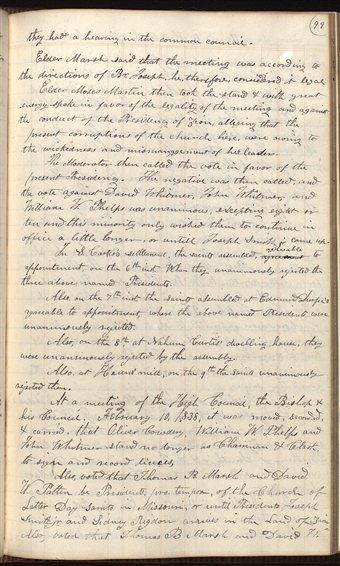 99
they had a hearing in the common council.
Elder Marsh said that the meeting was according to
the directions of Br. Joseph, he, therefore, considered it legal
Elder Moses Martin then took the stand & with great
energy spoke in favor of the legality of the meeting and against
the conduct of the Presidency of Zion, alleging that the
present corruptions of the church here, were owing to
the wickedness and mismanagement of her leaders.
The Moderator then called the vote in favor of the
present Presidency. The negative was then called, and
the vote against David Whitmer, John Whitmer, and
William W. Phelps was unanimous, excepting eight or
ten and this minority only wished them to continue in
office a little longer, or untill Joseph Smith jr come up.
In S. Carter's settlement, the saints assembled, agreeable to
appointment, on the 6th inst. When they unanimously rejected the
three above named Presidents.
Also, on the 7th inst the saints assembled at Edmund Durfee's
agreeable to appointment, where the above named Presidents were
unanimously rejected.
Also, on the 8th at Nahum Curtis' dwelling house, they
were unanimously rejected by the assembly.
Also, at Haun's mill, on the 9th the saints unanimously
rejected them.
At a meeting of the High Council, the Bishop &
his Council, February 10, 1838, it was moved, seconded,
& carried, that Oliver Cowdery, William W. Phelps and
John Whitmer stand no longer as Chairman & Clerk,
to sign and record liceces,
Also, voted that Thomas B. Marsh and David
W. Patten be Presidents, pro tempore, of the Church of
Latter Day Saints in Missouri, or until Presidents, Joseph
Smith jr and Sidney Rigdon arrives in the Land of Zion
Also, voted that Thomas B Marsh and David W.